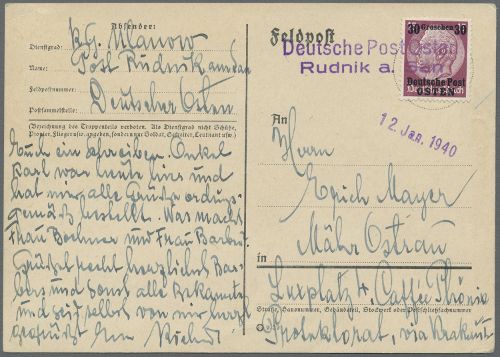 Absender:
Dienstgrad: K.G. Ulanow
Name: Post Rudnik am San
Feldpostnummer:
Deutscher Osten
Postsammelstelle:
(Bezeichnung des Truppenteils verboten. Als Dienstgrad nicht Schütze,
Pionier, Flieger usw. angeben, sondern nur Soldat, Gefreiter, Leutnant usw.)
Euch ein schreiben. Onkel
Karl war heute hier und
hat mir alle Grüße ordnungs-
gemäß bestellt. Was macht
Frau Bochner und Frau
recht herzlichst
und sonst alle Bekannten
und seid selbst von mir herzl
gegrüßt
Feldpost
Deutsche Post Osten
Rudnik a. San
30 Groschen 30
Deutsche Post
OSTEN
12. Jan. 1940
An
Herrn
Erich Mayer
Mähr Ostrau
in
Luxplatz 4, Caffee Phönix
Straße, Hausnummer, Gebäudeteil, Stockwerk oder Postschließfachnummer
Protektorat, via Krakau